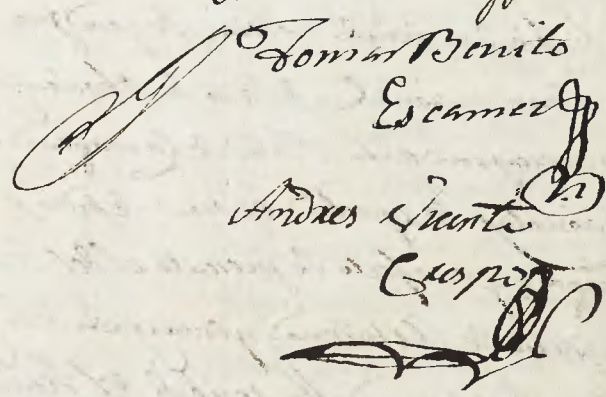 Tomas Benito
Escamez
Andres Vicente
Crespo